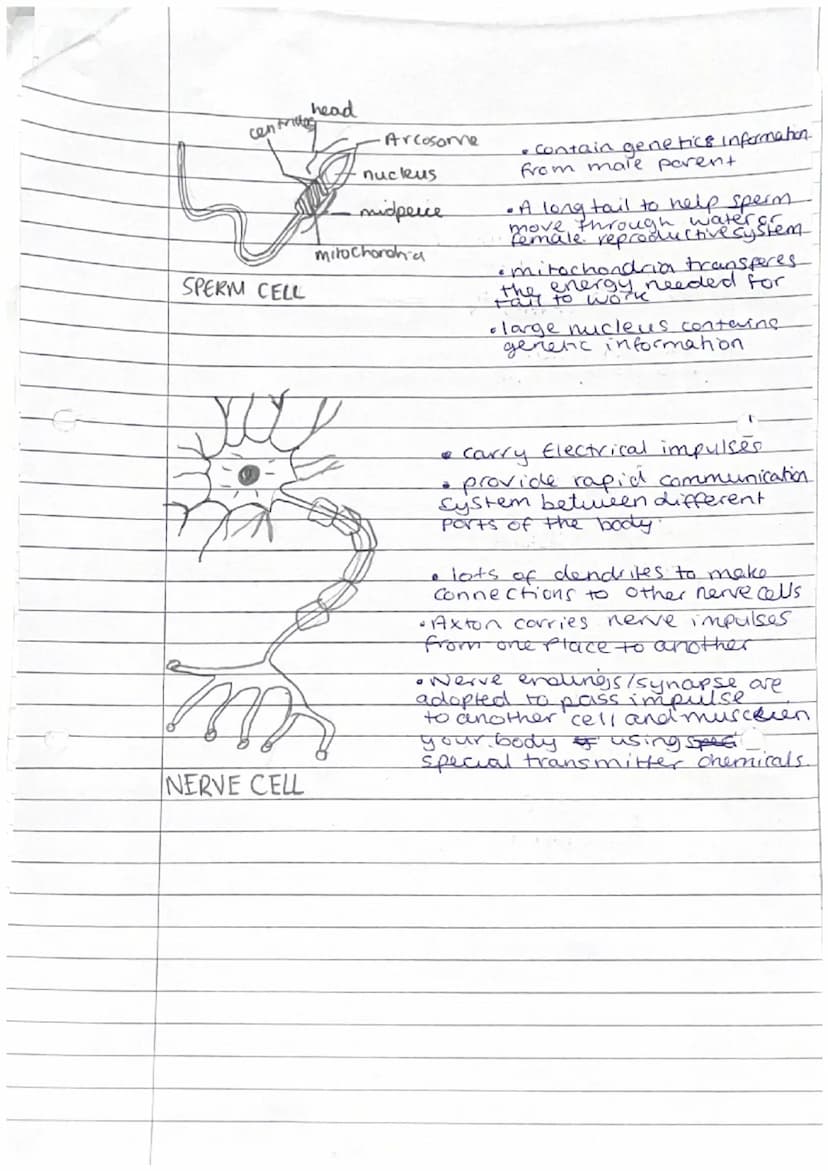 head
centrioles
Arcosome
nucleus
midpeice
mitochondria
SPERM CELL
• contain genetics information
from male parent
• A long tail to help sperm
move through water or
female reproductive system
• mitochondria transferes
the energy needed for
tail to work
• large nucleus containing
genetic information
• carry Electrical impulses
• provide rapid communication
system between different
parts of the body.
• lots of dendrites to make
connections to other nerve cells
• Axton carries nerve impulses
from one place to another
• Nerve endings/synapse are
adapted to pass impulse
to another cell and muscle in
your body using
special transmitter chemicals.
NERVE CELL